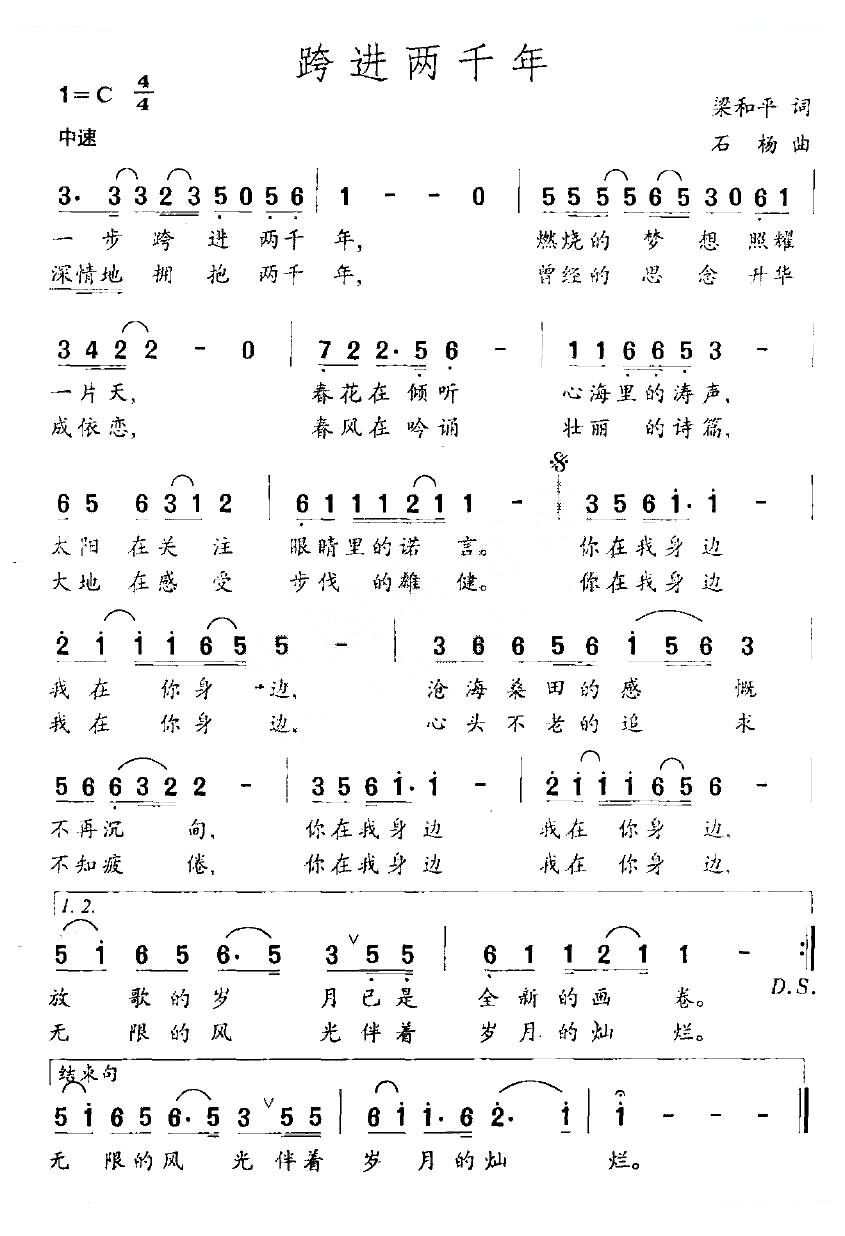 跨进两千年
1=C 4/4
梁和平 词
中速
石 杨 曲
3· 3 3 2 3 5 0 5 6 | 1 - - 0 | 5 5 5 5 6 5 3 0 6 1 |
一步 跨 进 两千 年, 燃烧的 梦 想 照耀
深情地 拥 抱 两千 年, 曾经的 思 念 升华
3 4 2 2 - 0 | 7 2 2· 5 6 - | 1 1 6 6 5 3 - |
一片天, 春花在 倾听 心海里的涛声,
成依恋, 春风在 吟诵 壮丽 的诗篇,
6 5 6 3 1 2 | 6 1 1 1 2 1 1 - | 3 5 6 1· 1 - |
太阳 在关 注 眼睛里的诺 言。 你在我身 边
大地 在感 受 步伐 的雄 健。 你在我身 边
2 1 1 1 6 5 5 - | 3 6 6 5 6 1 5 6 3
我在 你身 边, 沧海桑田的感 慨
我在 你身 边。 心头不老的追 求
5 6 6 3 2 2 - | 3 5 6 1· 1 - | 2 1 1 1 6 5 6 - |
不再沉 甸, 你在我身 边 我在 你身 边,
不知疲 倦, 你在我身 边 我在 你身 边,
1. 2.
5 1 6 5 6· 5 3 ∨ 5 5 | 6 1 1 2 1 1 - :|
放 歌的岁 月已是 全新的画 卷。 D.S.
无 限的风 光伴着 岁月的灿 烂。
结束句
5 1 6 5 6· 5 3 ∨ 5 5 | 6 1 1· 6 2· 1 | 1 - - - ‖
无 限的风 光伴着 岁 月的灿 烂。